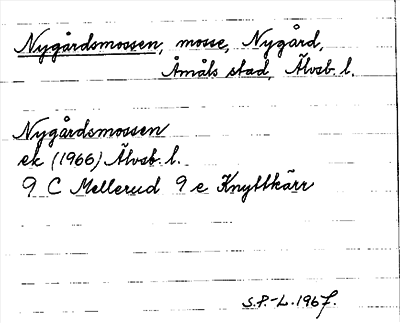 Nygårdsmossen, mosse, Nygård,
Åmåls stad, Älvsb. l.
Nygårdsmossen
ek (1966) Älvsb. l.
9 C Mellerud 9 e Knyttkärr
S.P.-L. 1967.